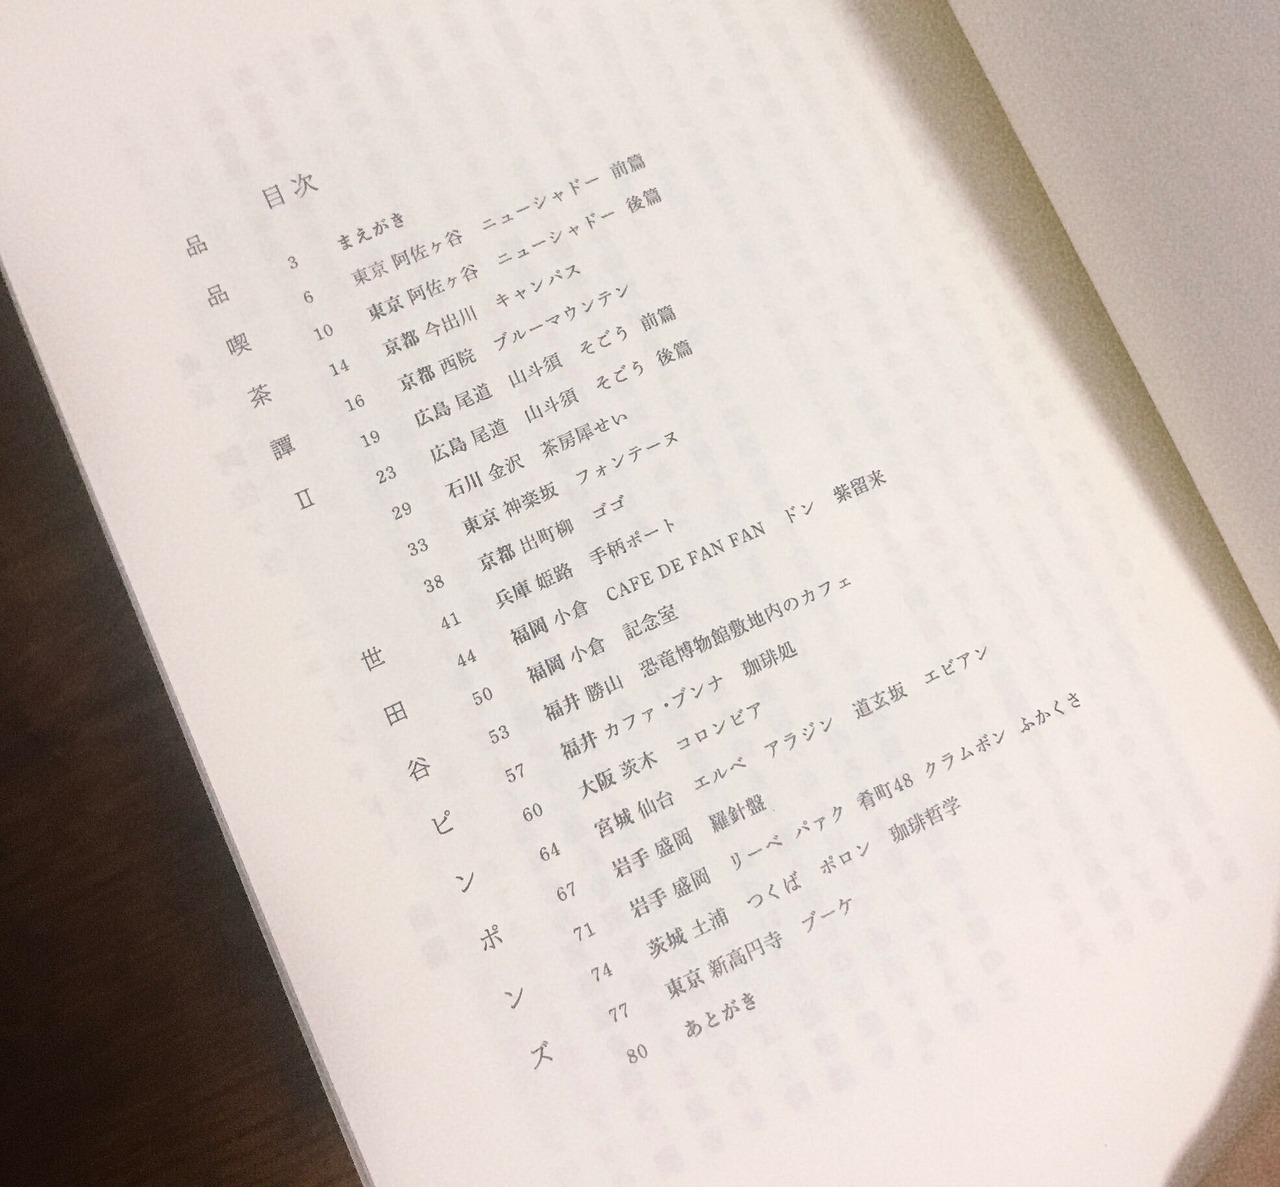 品品喫茶譚Ⅱ
世田谷ピンポンズ
目次
3 まえがき
6 東京 阿佐ヶ谷 ニューシャドー 前篇
10 東京 阿佐ヶ谷 ニューシャドー 後篇
14 京都 今出川 キャンパス
16 京都 西院 ブルーマウンテン
19 広島 尾道 山斗須 そごう 前篇
23 広島 尾道 山斗須 そごう 後篇
29 石川 金沢 茶房犀せい
33 東京 神楽坂 フォンテーヌ
38 京都 出町柳 ゴゴ
41 兵庫 姫路 手柄ポート
44 福岡 小倉 CAFE DE FAN FAN ドン 紫留来
50 福岡 小倉 記念室
53 福井 勝山 恐竜博物館敷地内のカフェ
57 福井 カファ・ブンナ 珈琲処
60 大阪 茨木 コロンビア
64 宮城 仙台 エルベ アラジン 道玄坂 エビアン
67 岩手 盛岡 羅針盤
71 岩手 盛岡 リーベ パァク 肴町48 クラムボン ふかくさ
74 茨城 土浦 つくば ポロン 珈琲哲学
77 東京 新高円寺 ブーケ
80 あとがき